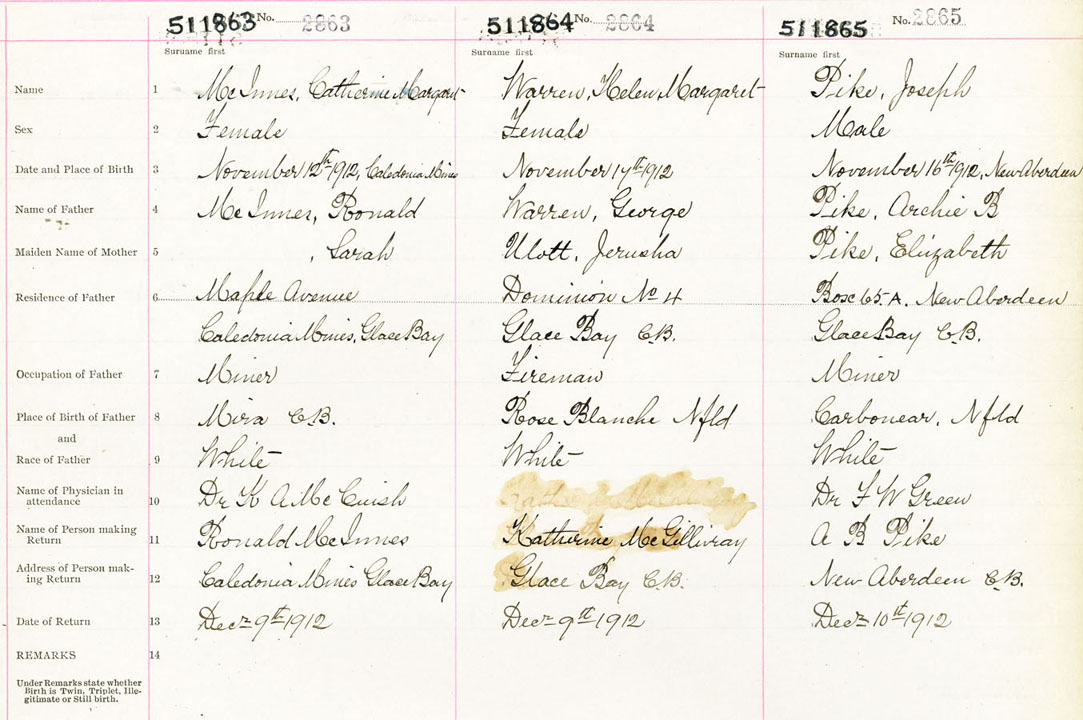 511863 No. 2863 511864 No. 2864 511865 No. 2865
Surname first Surname first Surname first
Name 1 McInnes, Catherine Margaret Warren, Helen Margaret Pike, Joseph
Sex 2 Female Female Male
Date and Place of Birth 3 November 12th 1912, Caledonia Mines November 14th 1912 November 16th 1912, New Aberdeen
Name of Father 4 McInnes, Ronald Warren, George Pike, Archie B
Maiden Name of Mother 5 , Sarah Jerusha Pike, Elizabeth
Residence of Father 6 Maple Avenue Dominion No 4 Box 65.A. New Aberdeen
Caledonia Mines, Glace Bay Glace Bay C.B. Glace Bay C.B.
Occupation of Father 7 Miner Fireman Miner
Place of Birth of Father 8 Mira C.B. Rose Blanche Nfld Carbonear, Nfld
and
Race of Father 9 White White White
Name of Physician in
attendance 10 Dr K A McCuish Dr F W Green
Name of Person making
Return 11 Ronald McInnes Katherine McGillivray A B Pike
Address of Person mak-
ing Return 12 Caledonia Mines Glace Bay Glace Bay C.B. New Aberdeen C.B.
Date of Return 13 Decr 9th 1912 Decr 9th 1912 Decr 10th 1912
REMARKS 14
Under Remarks state whether
Birth is Twin, Triplet, Ille-
gitimate or Still birth.